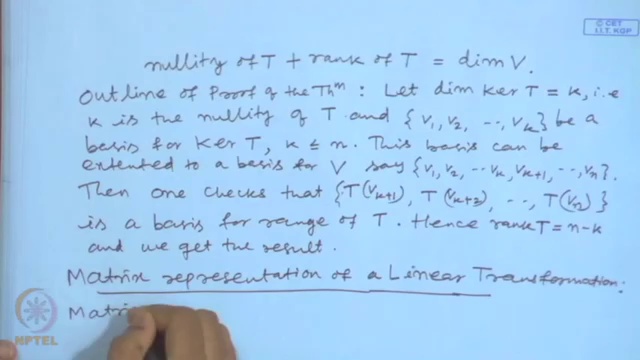 © CET
I.I.T. KGP
nullity of T + rank of T = dim V.
Outline of Proof of the Thm : Let dim ker T = k, i.e
k is the nullity of T and {v1, v2, ..., vk} be a
basis for Ker T, k ≤ n. This basis can be
extented to a basis for V say {v1, v2, ... vk, vk+1, ..., vn}.
Then one checks that {T(vk+1), T(vk+2), ..., T(vn)}
is a basis for range of T. Hence rank T = n-k
and we get the result.
Matrix representation of a Linear Transformation:
Matri
NPTEL